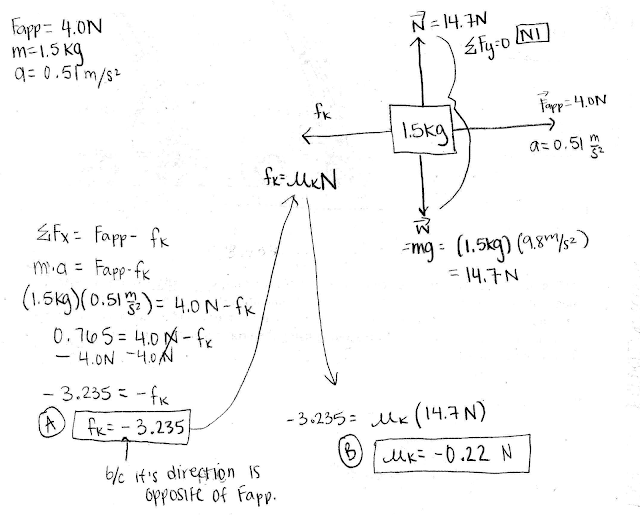 Fapp = 4.0N
m=1.5 kg
a= 0.51 m/s²
N = 14.7N
ΣFy=0 N1
fk
1.5kg
Fapp = 4.0N
a= 0.51 m/s²
fk=μkN
W
=mg = (1.5kg)(9.8m/s²)
= 14.7N
ΣFx = Fapp - fk
m·a = Fapp-fk
(1.5kg)(0.51 m/s²) = 4.0N-fk
0.765 = 4.0N-fk
- 4.0N -4.0N
-3.235 = -fk
A fk= -3.235
b/c it's direction is
opposite of Fapp.
-3.235= μk (14.7N)
B μk= -0.22 N